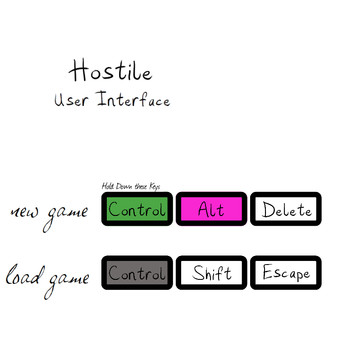 Hostile
User Interface
Hold Down these Keys
new game Control Alt Delete
load game Control Shift Escape